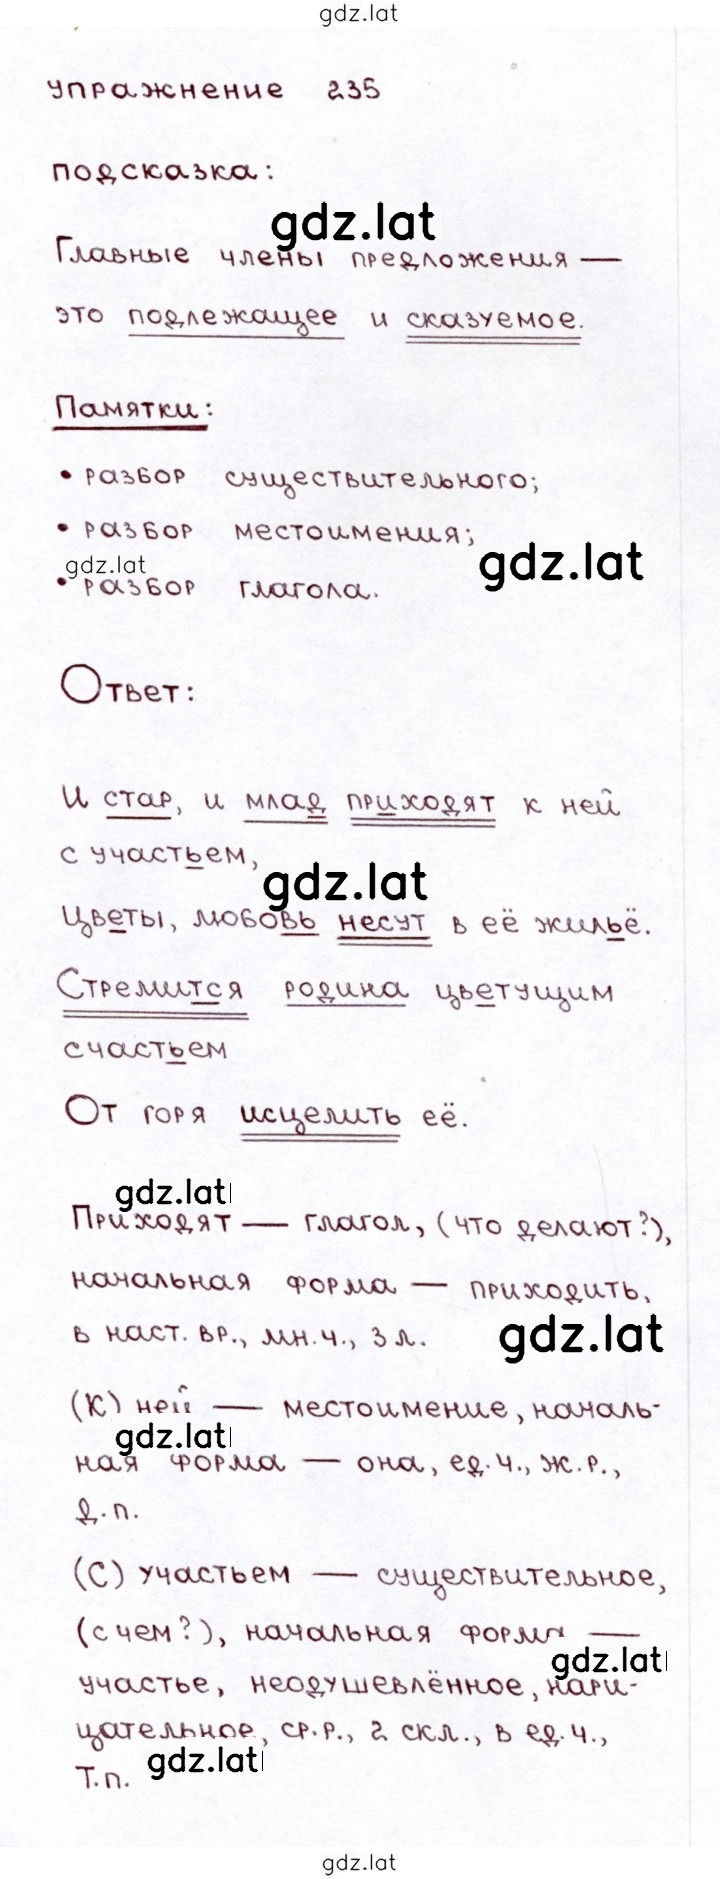 gdz.lat
упражнение 235
подсказка:
gdz.lat
Главные члены предложения —
это подлежащее и сказуемое.
Памятки:
• разбор существительного;
• разбор местоимения;
gdz.lat
gdz.lat
• разбор глагола.
Ответ:
И стар, и млад приходят к ней
с участьем,
gdz.lat
Цветы, любовь несут в её жильё.
Стремится родина цветущим
счастьем
От горя исцелить её.
gdz.lat
Приходят — глагол, (что делают?),
начальная форма — приходить,
в наст. вр., мн.ч., 3 л.
gdz.lat
(К) ней — местоимение, началь-
gdz.lat
ная форма — она, ед.ч., ж.р.,
д.п.
(С) участьем — существительное,
(с чем?), начальная форма —
gdz.lat
участье, неодушевлённое, нари-
цательное, ср.р., 2 скл., в ед.ч.,
gdz.lat
Т.п.
gdz.lat